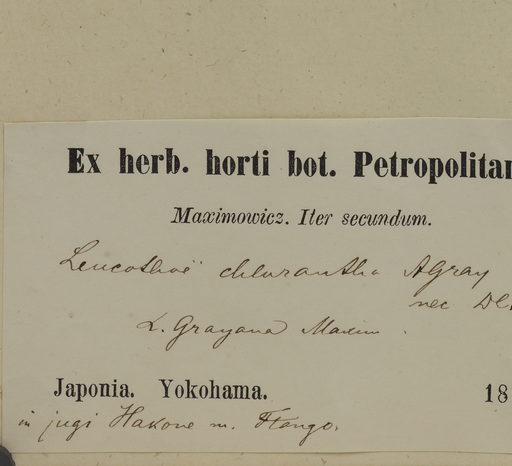 Ex herb. horti bot. Petropolitan
Maximowicz. Iter secundum.
Leucothoë chlorantha AGray
nec DC.
L. Grayana Maxim.
Japonia. Yokohama. 18
in jugi Hakone m.